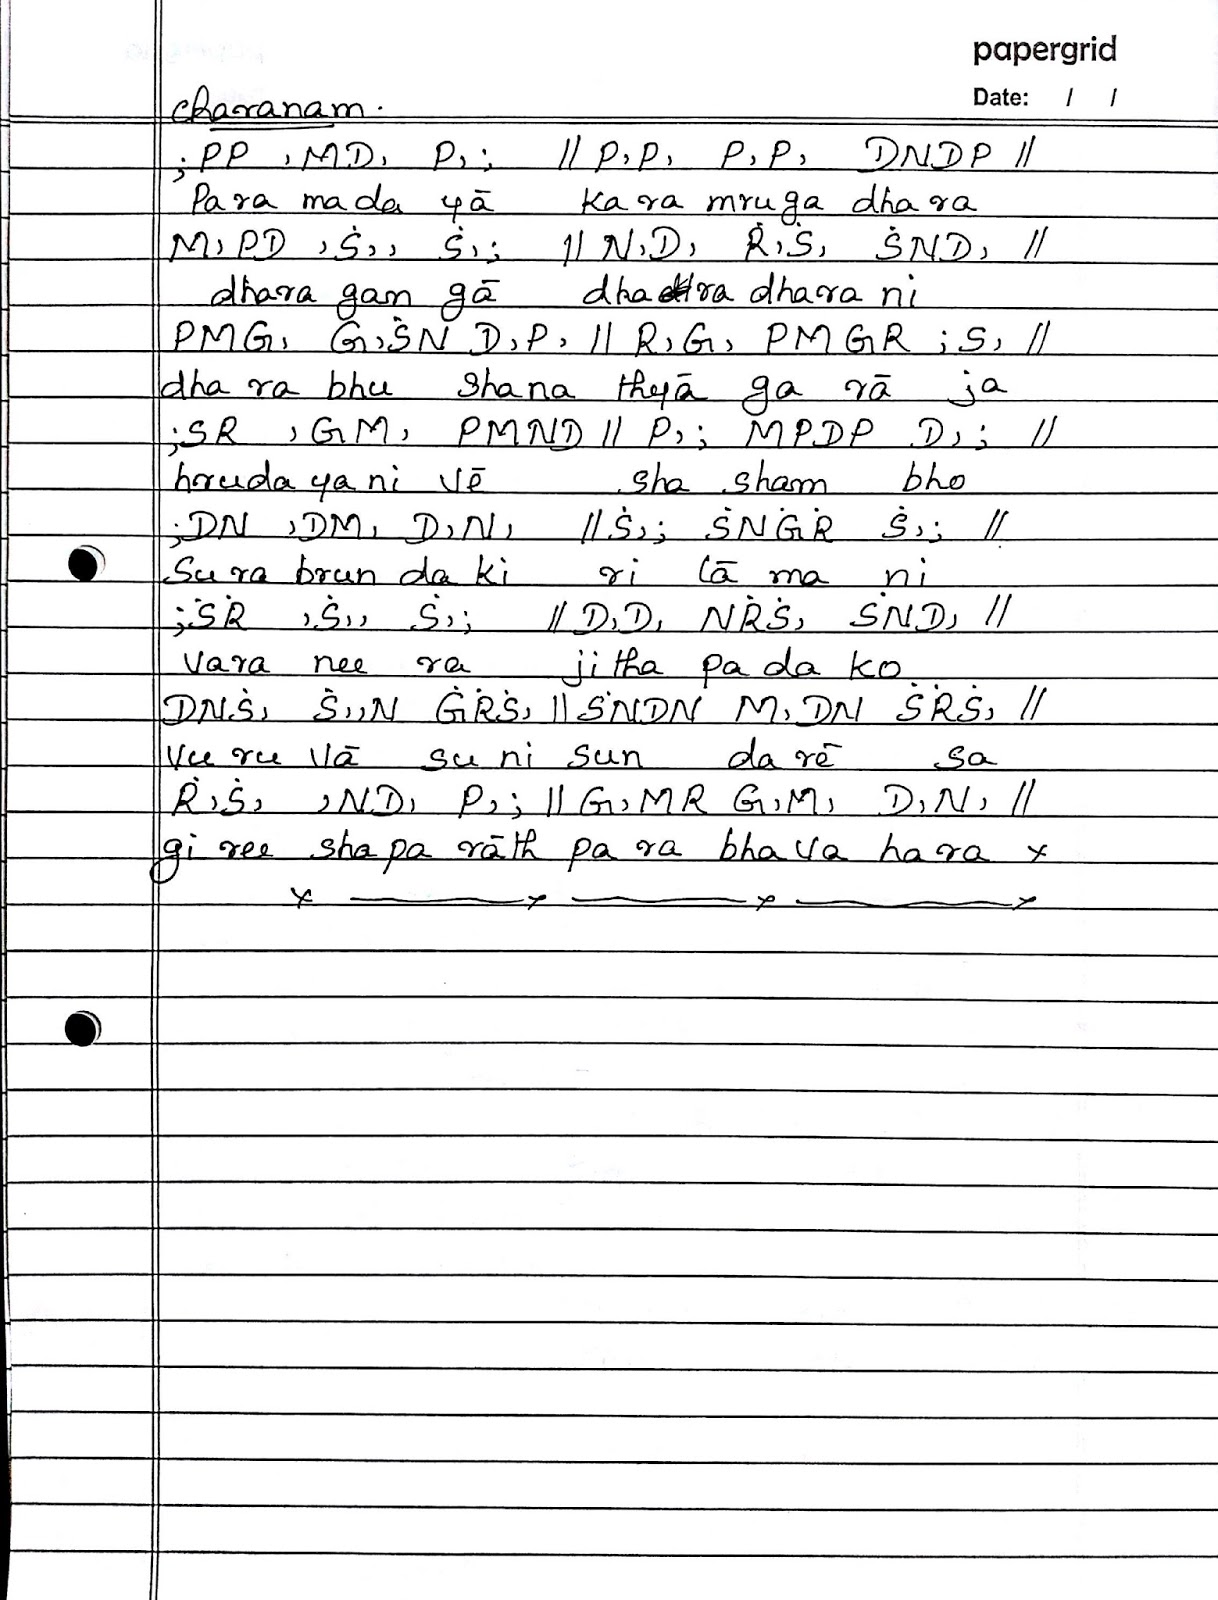 papergrid
Date: / /
Charanam.
;PP ,MD, P,; // P,P, P,P, DNDP //
Para mada yā kara mruga dhara
M,PD ,Ṡ,, Ṡ,; // N,D, Ṙ,Ṡ, ṠND, //
dhara gan gā dhara dhara ni
PMG, G,ṠN D,P, // R,G, PMGR ;S, //
dha ra bhu shana thyā ga rā ja
;SR ,GM, PMND // P,; MPDP D,; //
hruda ya ni vē sha sham bho
;DN ,DM, D,N, // Ṡ,; ṠNĠṘ Ṡ,; //
Su ra brun da ki ri tā ma ni
;ṠṘ ,Ṡ,, Ṡ,; // D,D, NṘṠ, ṠND, //
vara nee ra ji tha pa da ko
DNṠ, Ṡ,,N ĠṘṠ, // ṠNDN M,DN ṠṘṠ, //
vu ru vā su ni sun da rē sa
Ṙ,Ṡ, ,ND, P,; // G,MR G,M, D,N, //
gi ree sha pa rāth pa ra bha va hara x